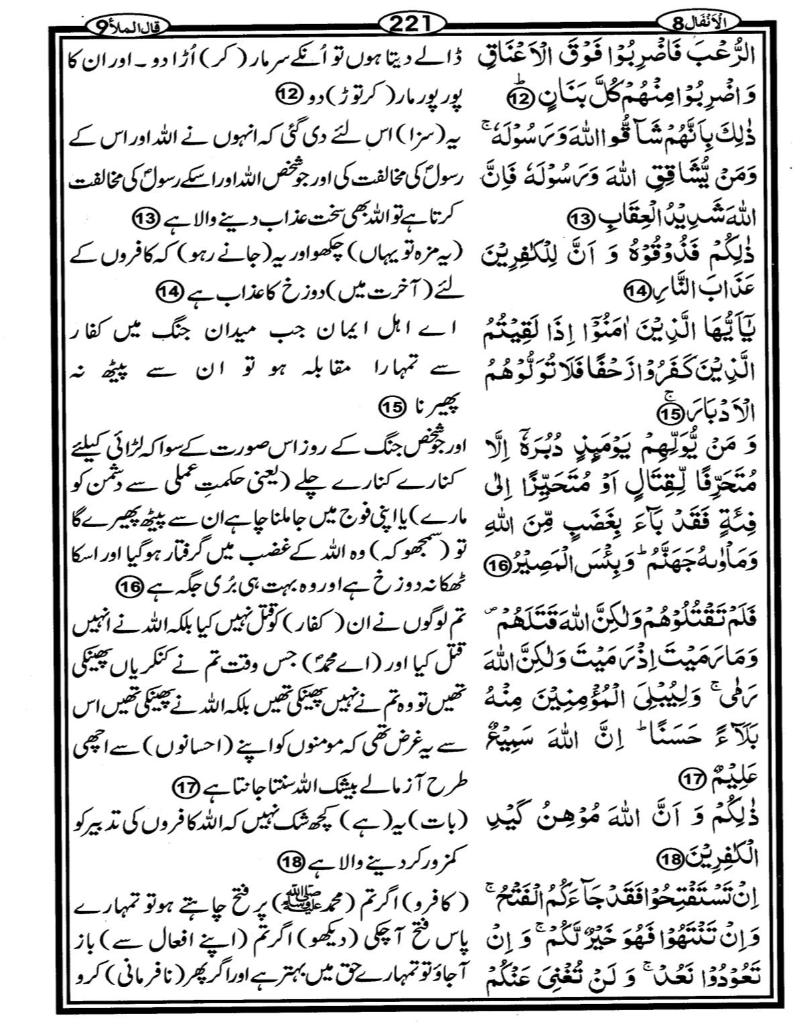 الْاَنْفَال 8
221
قال الملأ 9
الرُّعْبَ فَاضْرِبُوْا فَوْقَ الْاَعْنَاقِ
وَاضْرِبُوْا مِنْهُمْ كُلَّ بَنَانٍؕ 12
ذٰلِكَ بِاَنَّهُمْ شَآقُّوا اللّٰهَ وَرَسُوْلَهٗ ۚ
وَمَنْ يُّشَاقِقِ اللّٰهَ وَرَسُوْلَهٗ فَاِنَّ
اللّٰهَ شَدِيْدُ الْعِقَابِ 13
ذٰلِكُمْ فَذُوْقُوْهُ وَ اَنَّ لِلْكٰفِرِيْنَ
عَذَابَ النَّارِ 14
يٰۤاَيُّهَا الَّذِيْنَ اٰمَنُوْۤا اِذَا لَقِيْتُمُ
الَّذِيْنَ كَفَرُوْا زَحْفًا فَلَا تُوَلُّوْهُمُ
الْاَدْبَارَۚ 15
وَ مَنْ يُّوَلِّهِمْ يَوْمَىِٕذٍ دُبُرَهٗۤ اِلَّا
مُتَحَرِّفًا لِّقِتَالٍ اَوْ مُتَحَيِّزًا اِلٰى
فِئَةٍ فَقَدْ بَآءَ بِغَضَبٍ مِّنَ اللّٰهِ
وَمَاْوٰىهُ جَهَنَّمُ ؕ وَبِئْسَ الْمَصِيْرُ 16
فَلَمْ تَقْتُلُوْهُمْ وَلٰكِنَّ اللّٰهَ قَتَلَهُمْ ۪
وَمَا رَمَيْتَ اِذْ رَمَيْتَ وَلٰكِنَّ اللّٰهَ
رَمٰى ۚ وَلِيُبْلِىَ الْمُؤْمِنِيْنَ مِنْهُ
بَلَآءً حَسَنًا ؕ اِنَّ اللّٰهَ سَمِيْعٌ
عَلِيْمٌ 17
ذٰلِكُمْ وَ اَنَّ اللّٰهَ مُوْهِنُ كَيْدِ
الْكٰفِرِيْنَ 18
اِنْ تَسْتَفْتِحُوْا فَقَدْ جَآءَكُمُ الْفَتْحُ ۚ
وَاِنْ تَنْتَهُوْا فَهُوَ خَيْرٌ لَّكُمْ ۚ وَ اِنْ
تَعُوْدُوْا نَعُدْ ۚ وَ لَنْ تُغْنِىَ عَنْكُمْ
ڈالے دیتا ہوں تو اُنکے سر مار (کر) اُڑا دو ۔ اور ان کا
پور پور مار (کر توڑ) دو 12
یہ (سزا) اس لئے دی گئی کہ انہوں نے اللہ اور اس کے
رسولؐ کی مخالفت کی اور جو شخص اللہ اور اسکے رسولؐ کی مخالفت
کرتا ہے تو اللہ بھی سخت عذاب دینے والا ہے 13
(یہ مزہ تو یہاں) چکھو اور یہ (جانے رہو) کہ کافروں کے
لئے (آخرت میں) دوزخ کا عذاب ہے 14
اے اہل ایمان جب میدان جنگ میں کفار
سے تمہارا مقابلہ ہو تو ان سے پیٹھ نہ
پھیرنا 15
اور جو شخص جنگ کے روز اس صورت کے سوا کہ لڑائی کیلئے
کنارے کنارے چلے (یعنی حکمتِ عملی سے دشمن کو
مارے) یا اپنی فوج میں جا ملنا چاہے ان سے پیٹھ پھیرے گا
تو (سمجھو کہ) وہ اللہ کے غضب میں گرفتار ہو گیا اور اسکا
ٹھکانہ دوزخ ہے اور وہ بہت ہی بُری جگہ ہے 16
تم لوگوں نے ان (کفار) کو قتل نہیں کیا بلکہ اللہ نے انہیں
قتل کیا اور (اے محمدؐ) جس وقت تم نے کنکریاں پھینکی
تھیں تو وہ تم نے نہیں پھینکی تھیں بلکہ اللہ نے پھینکی تھیں اس
سے یہ غرض تھی کہ مومنوں کو اپنے (احسانوں) سے اچھی
طرح آزمالے بیشک اللہ سنتا جانتا ہے 17
(بات) یہ (ہے) کچھ شک نہیں کہ اللہ کافروں کی تدبیر کو
کمزور کر دینے والا ہے 18
(کافرو) اگر تم (محمد ﷺ) پر فتح چاہتے ہو تو تمہارے
پاس فتح آ چکی (دیکھو) اگر تم (اپنے افعال سے) باز
آ جاؤ تو تمہارے حق میں بہتر ہے اور اگر پھر (نافرمانی) کرو